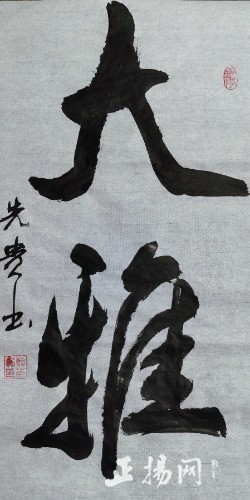 大雅
先贵书
正扬网